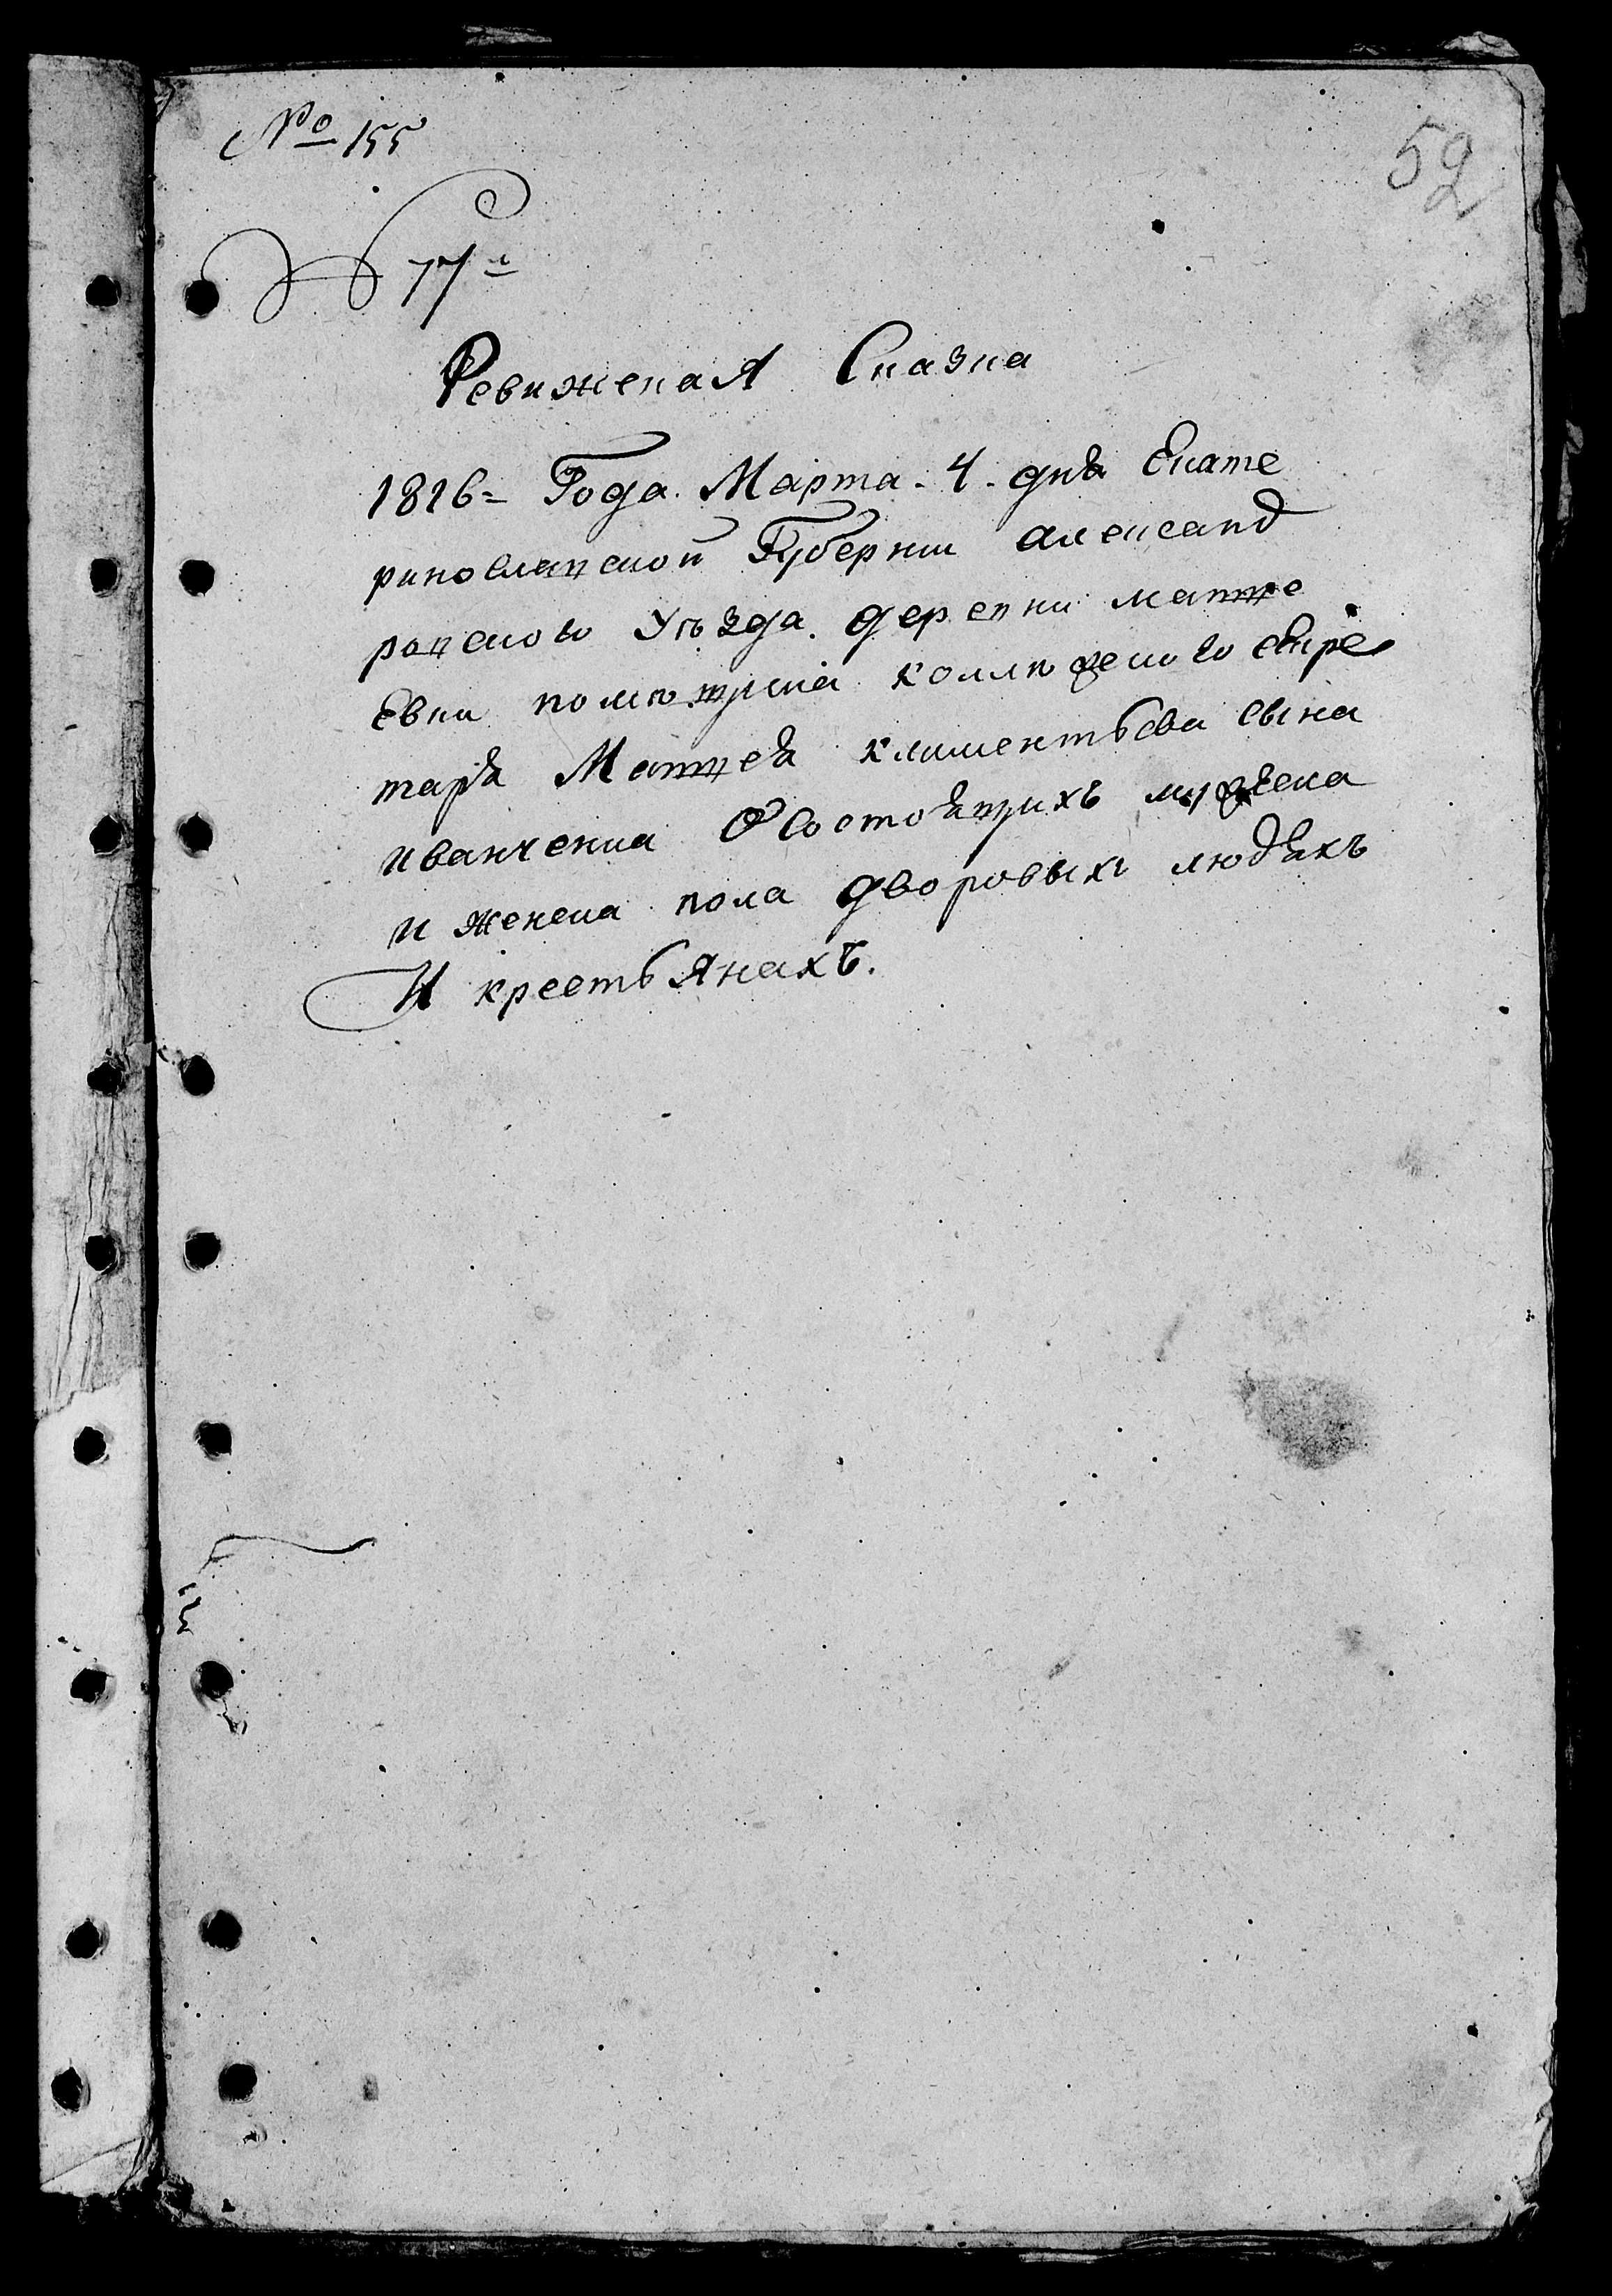 № 155
52
77й
Ревижская Сказка
1816= Года. Марта. 4. дня Екате
ринославской Губернии александ
ровского Уѣзда. деревни матве
евки помѣщика коллежского секре
таря Матвея климентьева сына
иванченка О состоящихъ мужеска
и женска пола дворовыхъ людяхъ
И крестьянахъ.